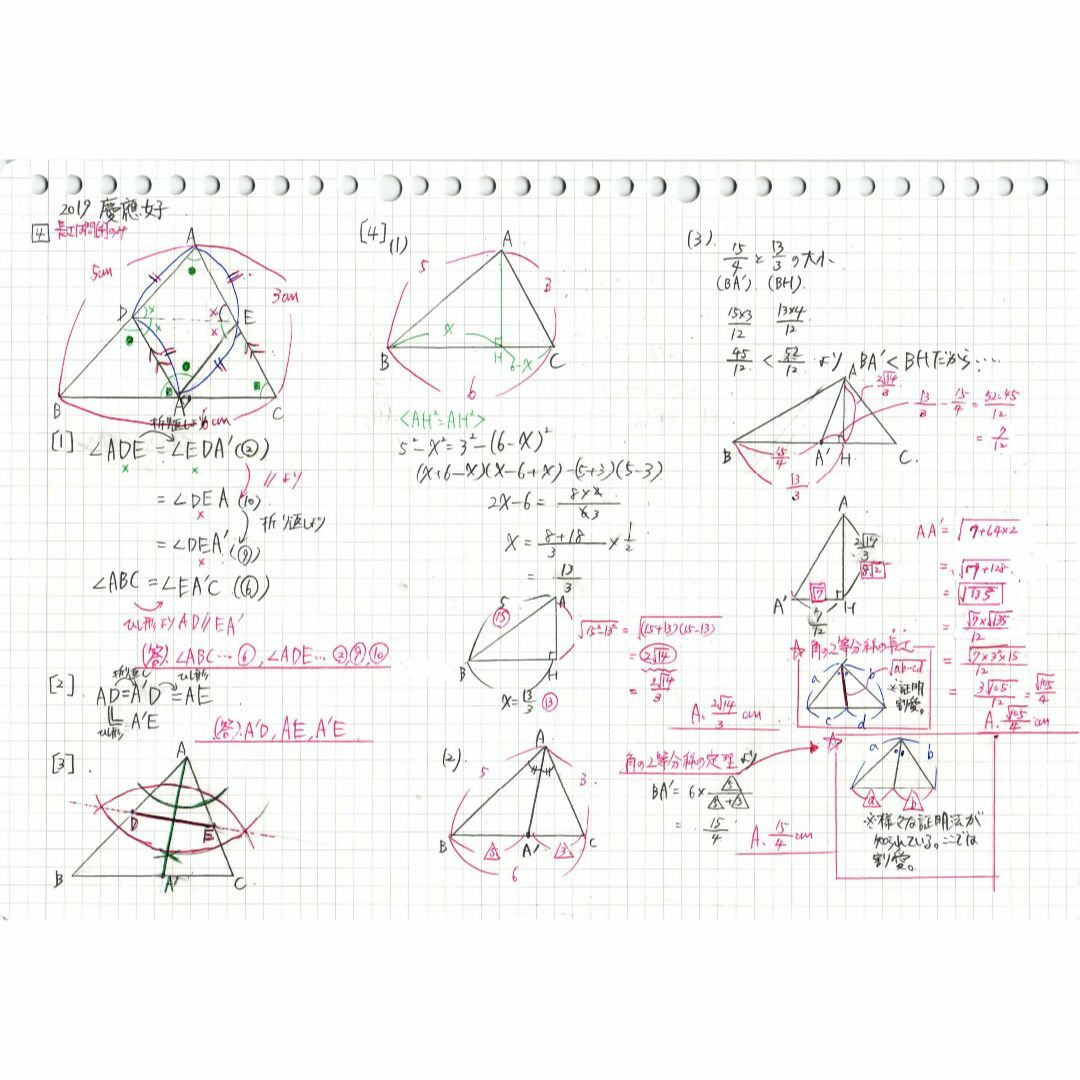 2019 慶應女子
4
A
5cm
3cm
D
E
B
A'
C
折り返し
6cm
[1] ∠ADE = ∠EDA' (②)
// より
= ∠DEA (⑩)
折り返しより
= ∠DEA' (⑨)
∠ABC = ∠EA'C (⑥)
ひし形よりAD // EA'
(答) ∠ABC … ⑥, ∠ADE … ②, ⑨, ⑩
[2].
折り返し
ひし形
AD = A'D = AE
ひし形
A'E
(答) A'D, AE, A'E
[3].
A
D
E
B
A'
C
[4] (1)
A
5
3
x
B
H
C
6-x
6
<AH²=AH²>
5²-x²=3²-(6-x)²
(x+6-x)(x-6+x)=(5+3)(5-3)
2x-6 = 8×2/63
x = 8+18/3 × 1/2
= 13/3
5
⑮
A
B
H
x=13/3 ⑬
√15²-13² = √(15+13)(15-13)
= 2√14
= 2√14/3
A. 2√14/3 cm
(2).
A
5
3
B
5
A'
3
C
6
角の2等分線の定理より
BA' = 6× 5/5+3
= 15/4
A. 15/4 cm
(3).
15/4 と 13/3 の大小.
(BA') (BH).
15×3/12 13×4/12
45/12 < 52/12 より BA' < BHだから…
A
2√14/3
13/3 - 15/4 = 52-45/12
= 7/12
B
15/4
A'
H
C.
13/3
A
2√14/3
8√2
√7
A'
H
7/12
AA' = √7+64×2
= √7+128
= √135
= √7×√135/12
= √7×3²×15/12
= 3√105/12 = √105/4
A. √105/4 cm
☆角の2等分線の長さ
a
b
c
d
√ab-cd
※証明
割愛。
☆
a
b
a
b
※様々な証明法が
知られている。ここでは
割愛。